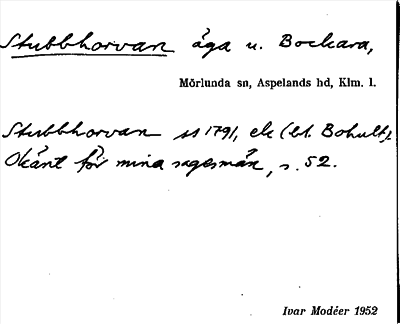 Stubbhorvan äga u. Bockara,
Mörlunda sn, Aspelands hd, Klm. l.
Stubbhorvan ss 1791, ek (bl. Bohult).
Okänt för mina sagesmän, s. 52.
Ivar Modéer 1952